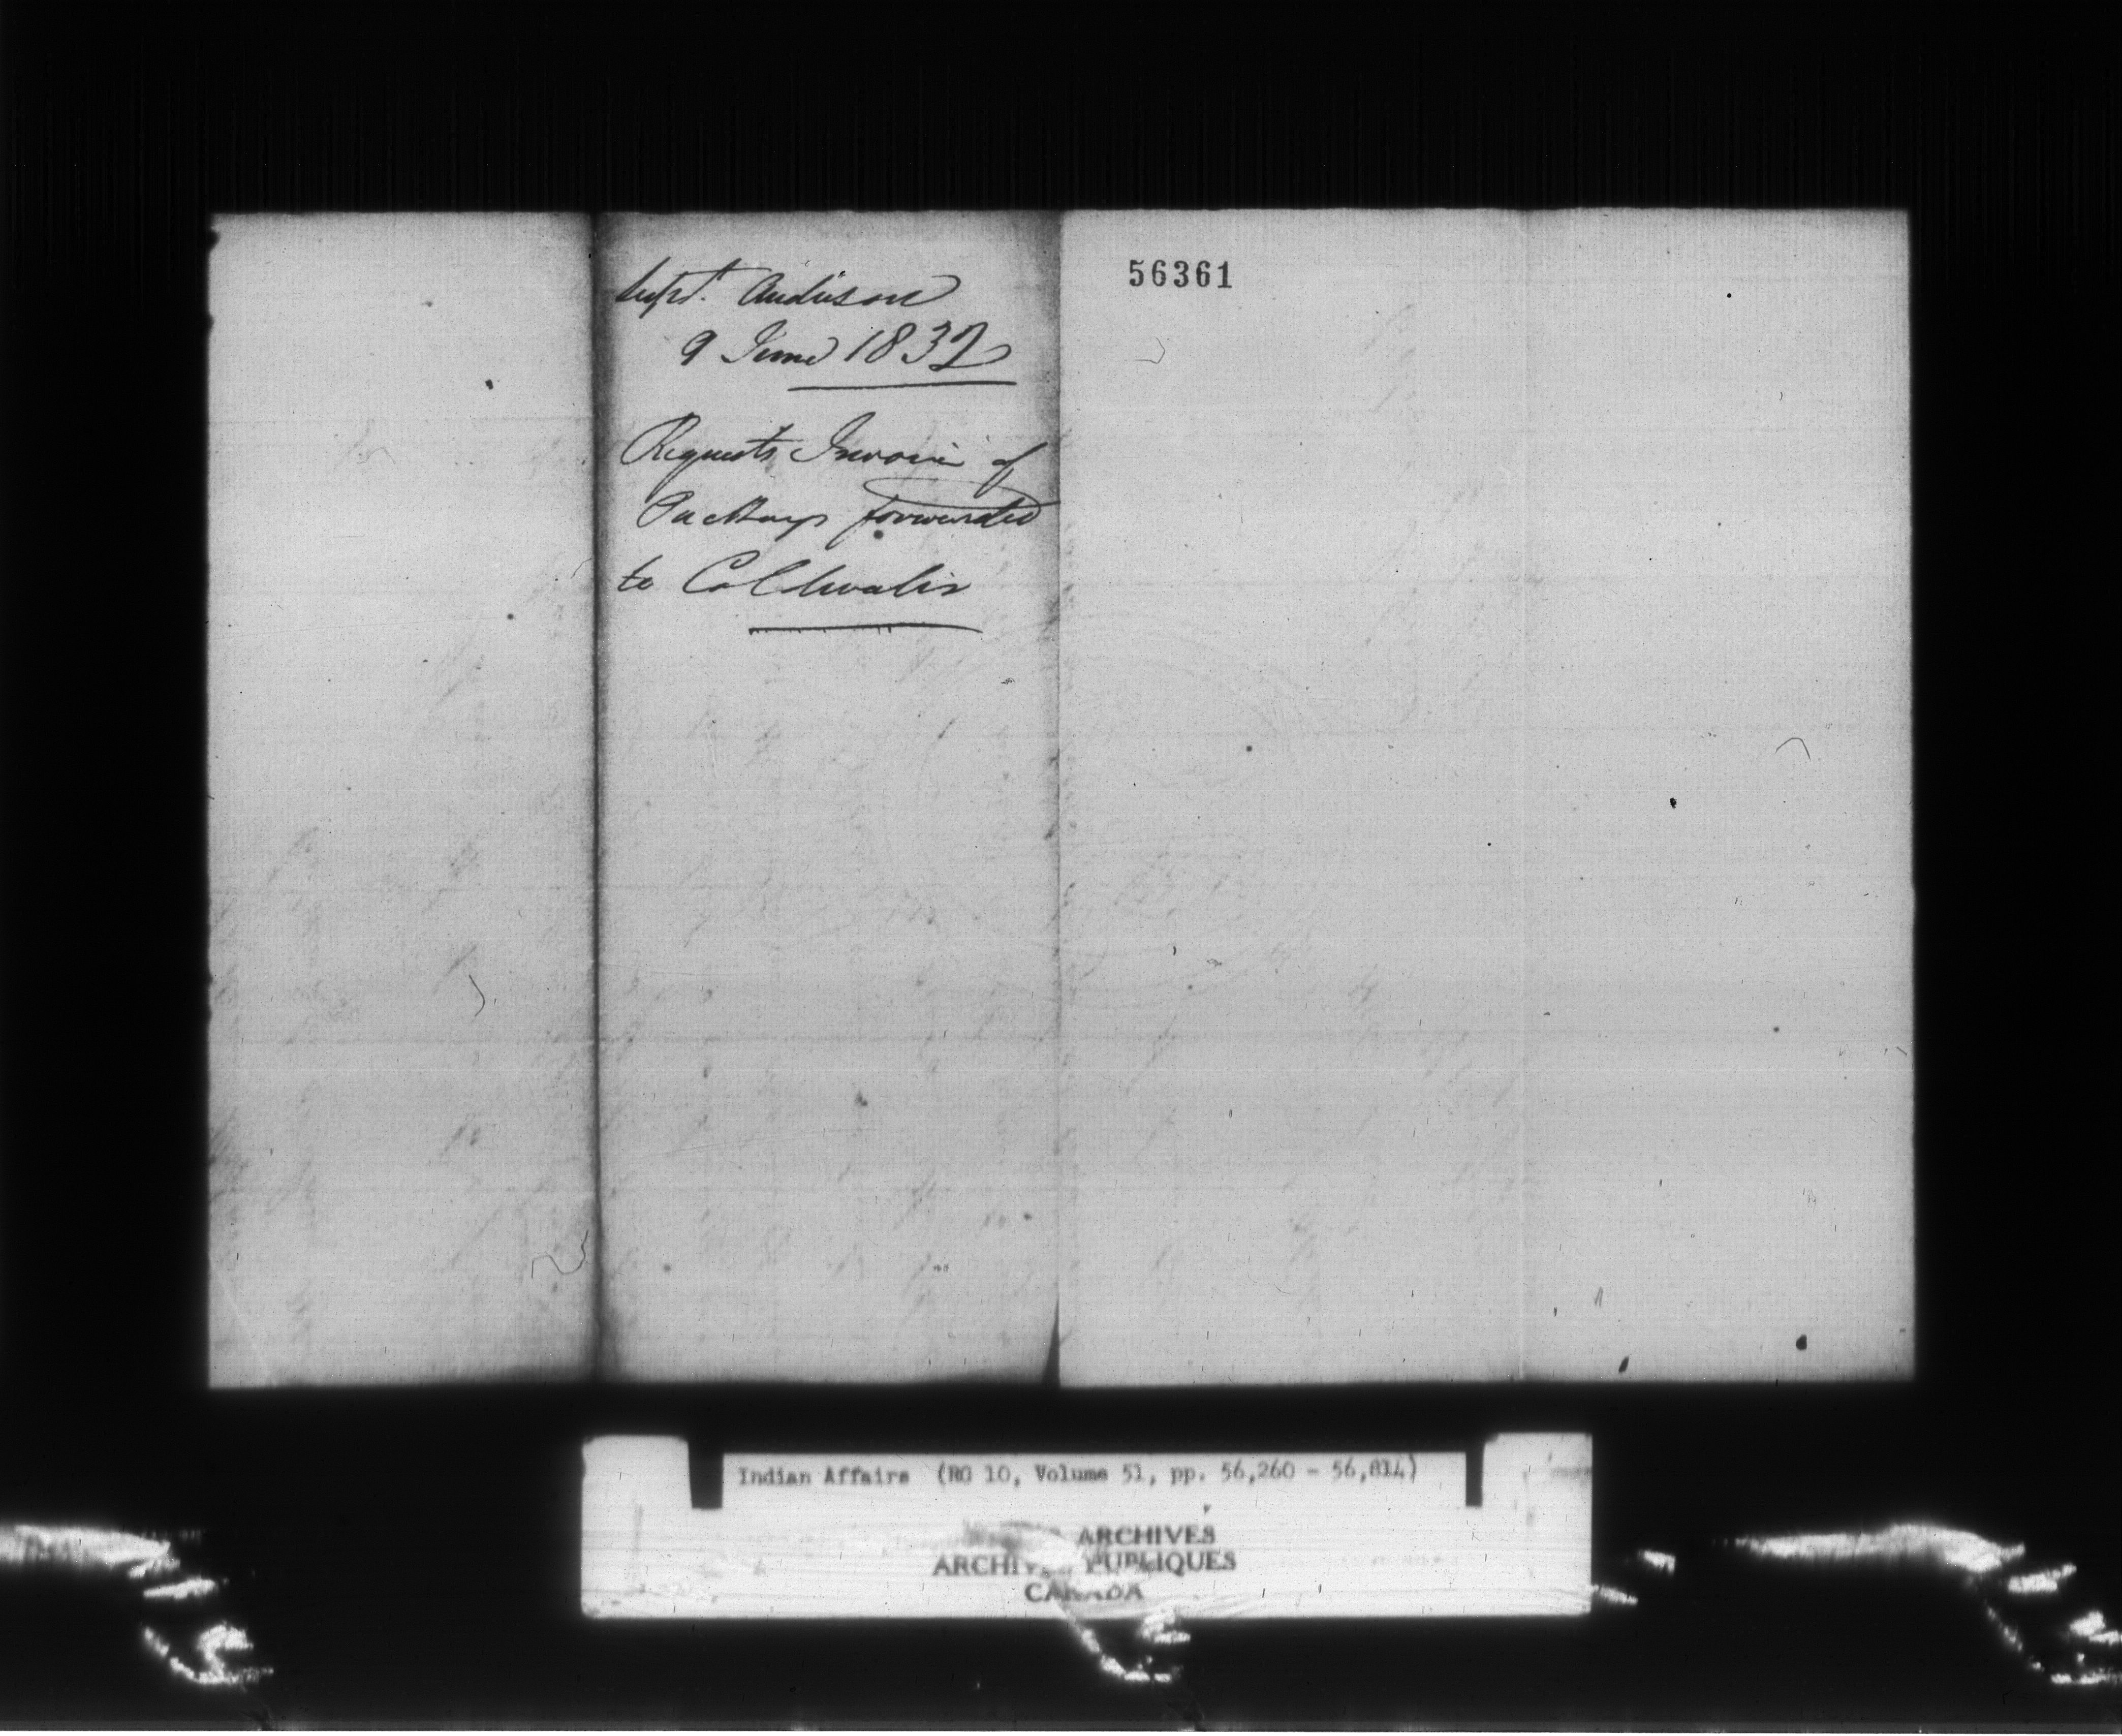 Supt. Anderson
9 June 1832
Requests Invoice of
Packages forwarded
to Coldwater
56361
Indian Affairs (RG 10, Volume 51, pp. 56,260 - 56,814)
ARCHIVES
ARCHIVES PUBLIQUES
CANADA